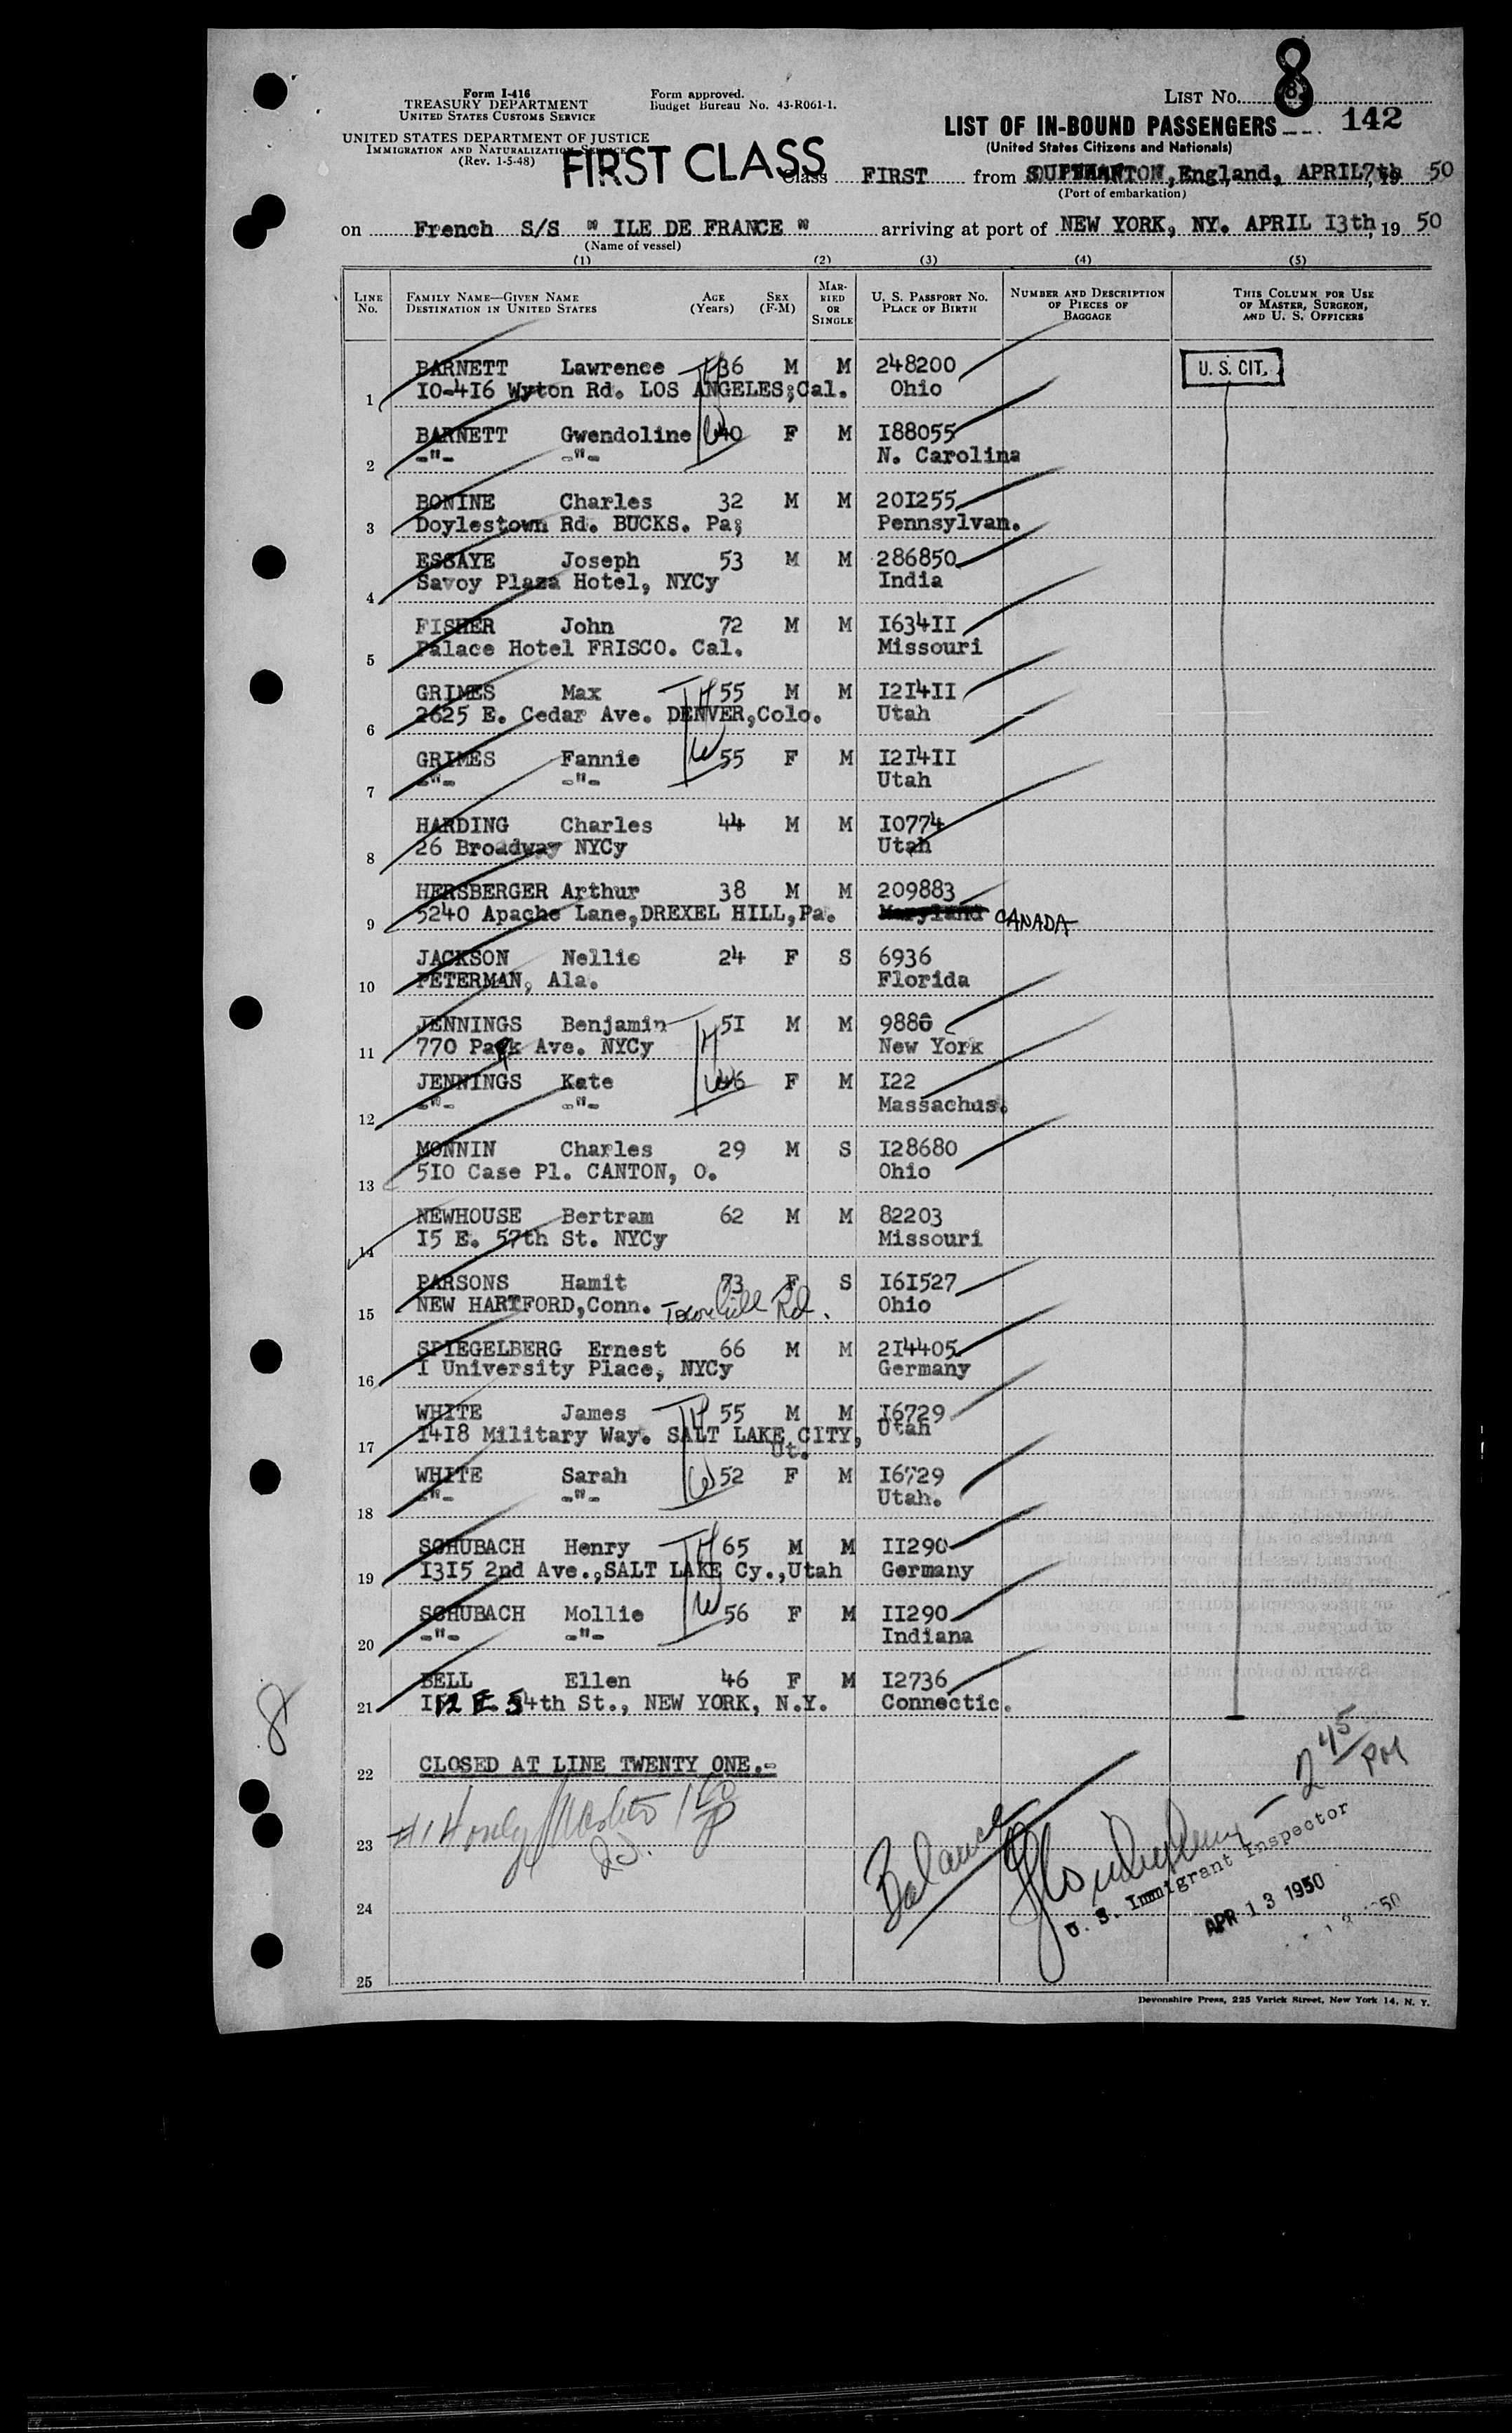 8
LIST No. 8.
Form I-416
TREASURY DEPARTMENT
UNITED STATES CUSTOMS SERVICE
Form approved.
Budget Bureau No. 43-R061-1.
UNITED STATES DEPARTMENT OF JUSTICE
IMMIGRATION AND NATURALIZATION SERVICE
(Rev. 1-5-48)
LIST OF IN-BOUND PASSENGERS 142
(United States Citizens and Nationals)
FIRST CLASS
Class FIRST from England, APRIL 7th, 19 50
(Port of embarkation)
on French S/S " ILE DE FRANCE " arriving at port of NEW YORK, NY. APRIL I3th, 19 50
(Name of vessel)
(1) (2) (3) (4) (5)
LINE No. FAMILY NAME—GIVEN NAME DESTINATION IN UNITED STATES AGE (Years) SEX (F-M) MARRIED OR SINGLE U. S. PASSPORT NO. PLACE OF BIRTH NUMBER AND DESCRIPTION OF PIECES OF BAGGAGE THIS COLUMN FOR USE OF MASTER, SURGEON, AND U. S. OFFICERS
BARNETT Lawrence H 36 M M 248200 U. S. CIT.
1 I0-4I6 Wyton Rd. LOS ANGELES;Cal. Ohio
BARNETT Gwendoline W 40 F M I88055
2 -"- -"- N. Carolina
BONINE Charles 32 M M 20I255
3 Doylestown Rd. BUCKS. Pa; Pennsylvan.
ESSAYE Joseph 53 M M 286850
4 Savoy Plaza Hotel, NYCy India
FISHER John 72 M M I634II
5 Palace Hotel FRISCO. Cal. Missouri
GRIMES Max H 55 M M I2I4II
6 2625 E. Cedar Ave. DENVER,Colo. Utah
GRIMES Fannie W 55 F M I2I4II
7 -"- -"- Utah
HARDING Charles 44 M M I0774
8 26 Broadway NYCy Utah
HERSBERGER Arthur 38 M M 209883
9 5240 Apache Lane,DREXEL HILL,Pa. Maryland CANADA
JACKSON Nellie 24 F S 6936
10 PETERMAN, Ala. Florida
JENNINGS Benjamin H 5I M M 9886
11 770 Park Ave. NYCy New York
JENNINGS Kate W 46 F M I22
12 -"- -"- Massachus.
MONNIN Charles 29 M S I28680
13 5I0 Case Pl. CANTON, O. Ohio
NEWHOUSE Bertram 62 M M 82203
14 I5 E. 57th St. NYCy Missouri
PARSONS Hamit 73 F S I6I527
15 NEW HARTFORD,Conn. Town Hill Rd. Ohio
SPIEGELBERG Ernest 66 M M 2I4405
16 I University Place, NYCy Germany
WHITE James H 55 M M I6729
17 I4I8 Military Way. SALT LAKE CITY, Ut. Utah
WHITE Sarah W 52 F M I6729
18 -"- -"- Utah.
SCHUBACH Henry H 65 M M II290
19 I3I5 2nd Ave.,SALT LAKE Cy.,Utah Germany
SCHUBACH Mollie W 56 F M II290
20 -"- -"- Indiana
BELL Ellen 46 F M I2736
21 I12 E 54th St., NEW YORK, N.Y. Connectic.
8
22 CLOSED AT LINE TWENTY ONE.-
2 45 PM
#14 only
23
Balance
U. S. Immigrant Inspector
24
APR 13 1950
25
Devonshire Press, 225 Varick Street, New York 14, N. Y.